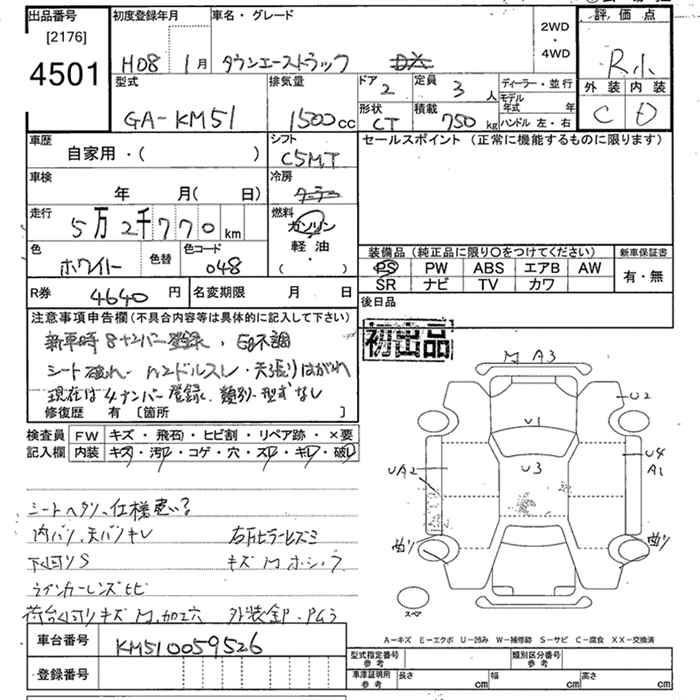 出品番号 初度登録年月 車名・グレード 2WD・4WD 評価点
[2176]
4501 H08 1月 タウンエーストラック R小
型式 排気量 ドア 定員 ディーラー・並行 外装 内装
GA-KM51 1500cc 2 3人 モデル年式 年 C D
形状 積載 ハンドル 左・右
CT 750kg
車歴 シフト セールスポイント（正常に機能するものに限ります）
自家用・( ) C5MT
車検 冷房
年 月( 日) クーラー
走行 燃料
5万2千770km ガソリン
軽油
・( )
色 色替 色コード
ホワイト 048
装備品（純正品に限り○をつけてください） 新車保証書
PS PW ABS エアB AW 有・無
SR ナビ TV カワ
R券 4640円 名変期限 月 日 後日品
初出品
注意事項申告欄(不具合内容等は具体的に記入して下さい)
新車時8ナンバー登録、Eg不調
シート破れ
天張りはがれ
現在は4ナンバー登録、類別・型式なし
修復歴 有 [箇所 ]
検査員記入欄 FW キズ・飛石・ヒビ割・リペア跡・×要
内装 キズ・汚レ・コゲ・穴・スレ・キレ・破レ
シートヘタリ、仕様
内バリ、天バリキレ
下回りS キズ
ウインカーレンズヒビ
荷台回りキズ M.加工穴
M A3
U2
U1
U3
U4
A1
UA2
曲リ 曲リ
スペア
A-キズ E-エクボ U-凹み W-補修跡 S-サビ C-腐食 XX-交換済
車台番号 KM510059526
型式指定番号 参考 類別区分番号 参考
登録番号
車庫証明用 参考 長さ cm 幅 cm 高さ cm